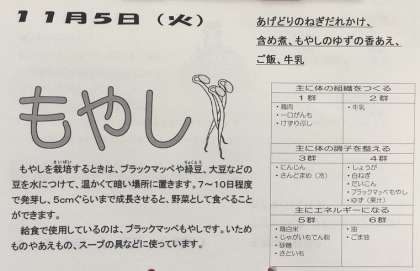 11月5日（火）
あげどりのねぎだれかけ、
含め煮、もやしのゆずの香あえ、
ご飯、牛乳
もやし
もやしを栽培するときは、ブラックマッペや緑豆、大豆などの
豆を水につけて、温かくて暗い場所に置きます。7～10日程度
で発芽し、5cmぐらいまで成長させると、野菜として食べること
ができます。
給食で使用しているのは、ブラックマッペもやしです。いため
ものやあえもの、スープの具などに使っています。
主に体の組織をつくる
1群 2群
・鶏肉 ・牛乳
・一口がんも
・けずりぶし
主に体の調子を整える
3群 4群
・にんじん ・しょうが
・さんどまめ（冷） ・白ねぎ
・だいこん
・ブラックマッペもやし
・ゆず（果汁）
主にエネルギーになる
5群 6群
・精白米 ・油
・じゃがいもでん粉 ・ごま油
・砂糖
・さといも